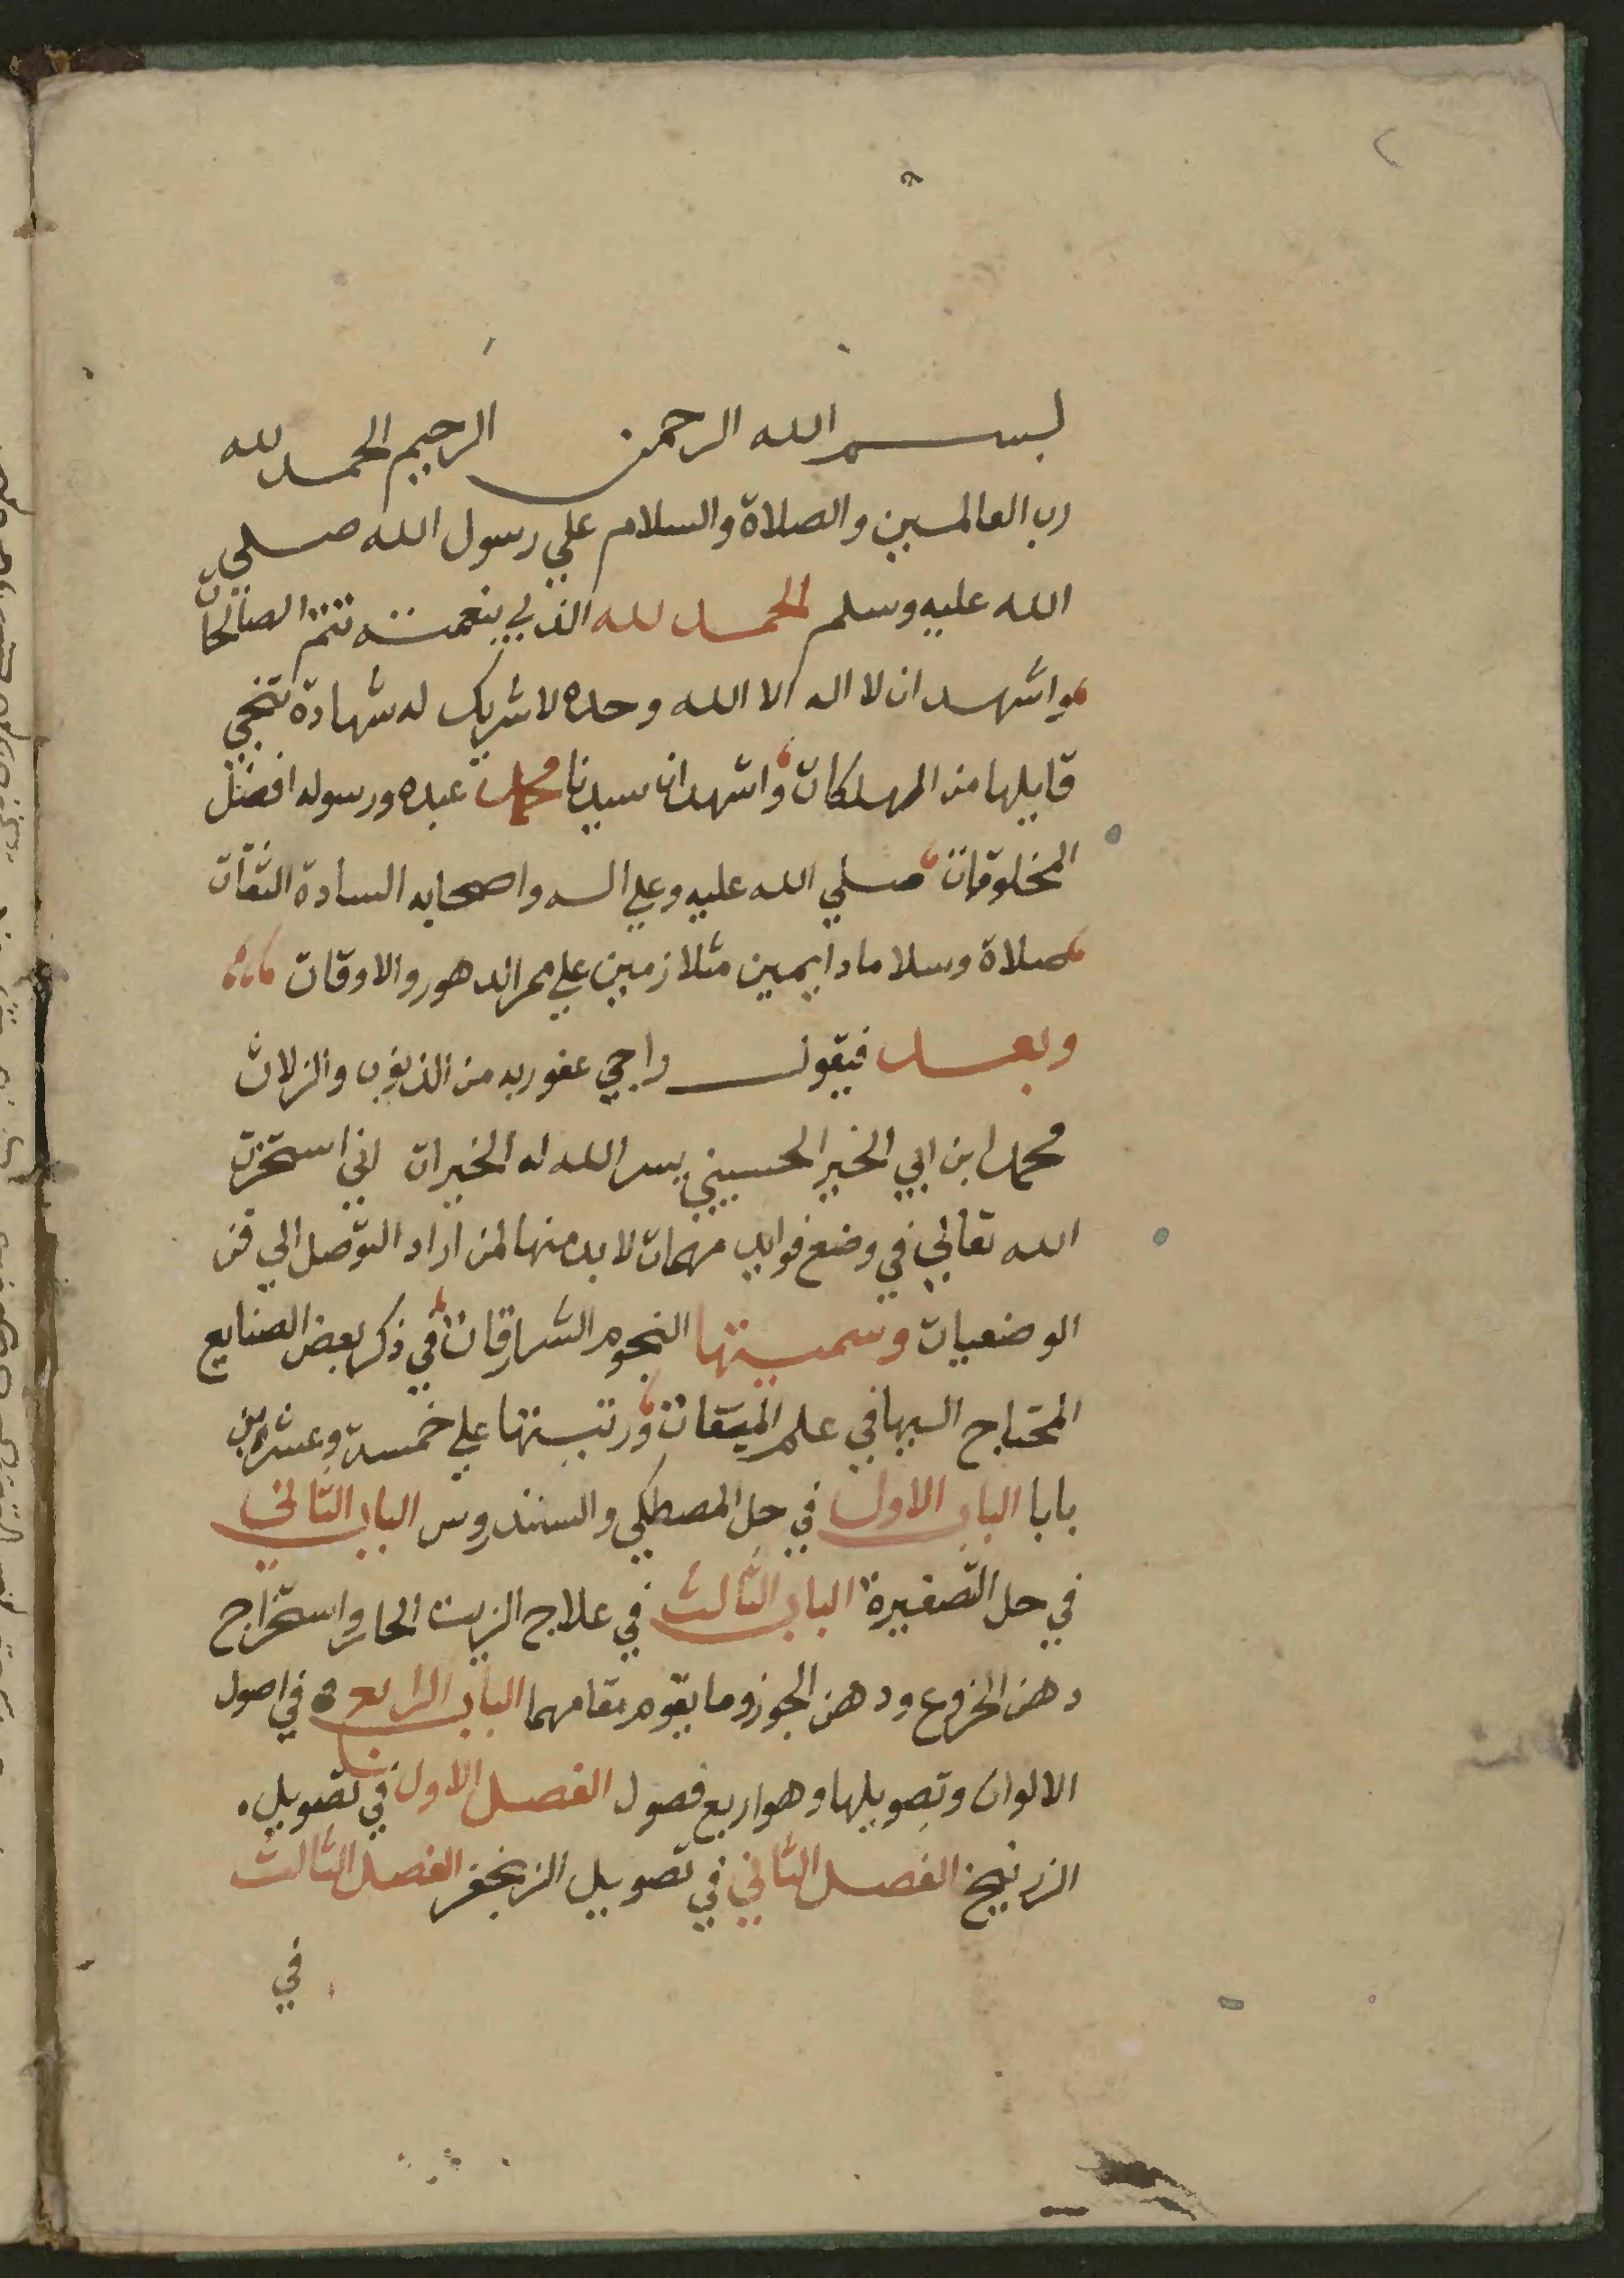 ٢
بسم الله الرحمن الرحيم الحمد لله
رب العالمين والصلاة والسلام علي رسول الله صلي
الله عليه وسلم الحمد لله الذي بنعمته تتم الصالحات
واشهد ان لا اله الا الله وحده لا شريك له شهادة تنجي
قايلها من المهلكات واشهد ان سيدنا محمد عبده ورسوله افضل
المخلوقات صلي الله عليه وعلي اله واصحابه السادة الثقات
صلاة وسلاما دايمين متلازمين علي ممر الدهور والاوقات
وبعد فيقول راجي عفو ربه من الذنوب والزلات
محمد ابن ابي الخير الحسيني يسر الله له الخيرات اني استخرت
الله تعالي في وضع فوايد مهمات لا بد منها لمن اراد التوصل الي فن
الوضعيات وسميتها النجوم الشارقات في ذكر بعض الصنايع
المحتاج اليها في علم الميقات ورتبتها علي خمسة وعشرين
بابا الباب الاول في حل المصطكي والسندروس الباب الثاني
في حل التصفيرة الباب الثالث في علاج الزيت الحار واستخراج
دهن الخروع ودهن الجوز وما يقوم مقامهما الباب الرابع في اصول
الالوان وتصويلها وهو اربع فصول الفصل الاول في تصويل
الزرنيخ الفصل الثاني في تصويل الزنجفر الفصل الثالث
في